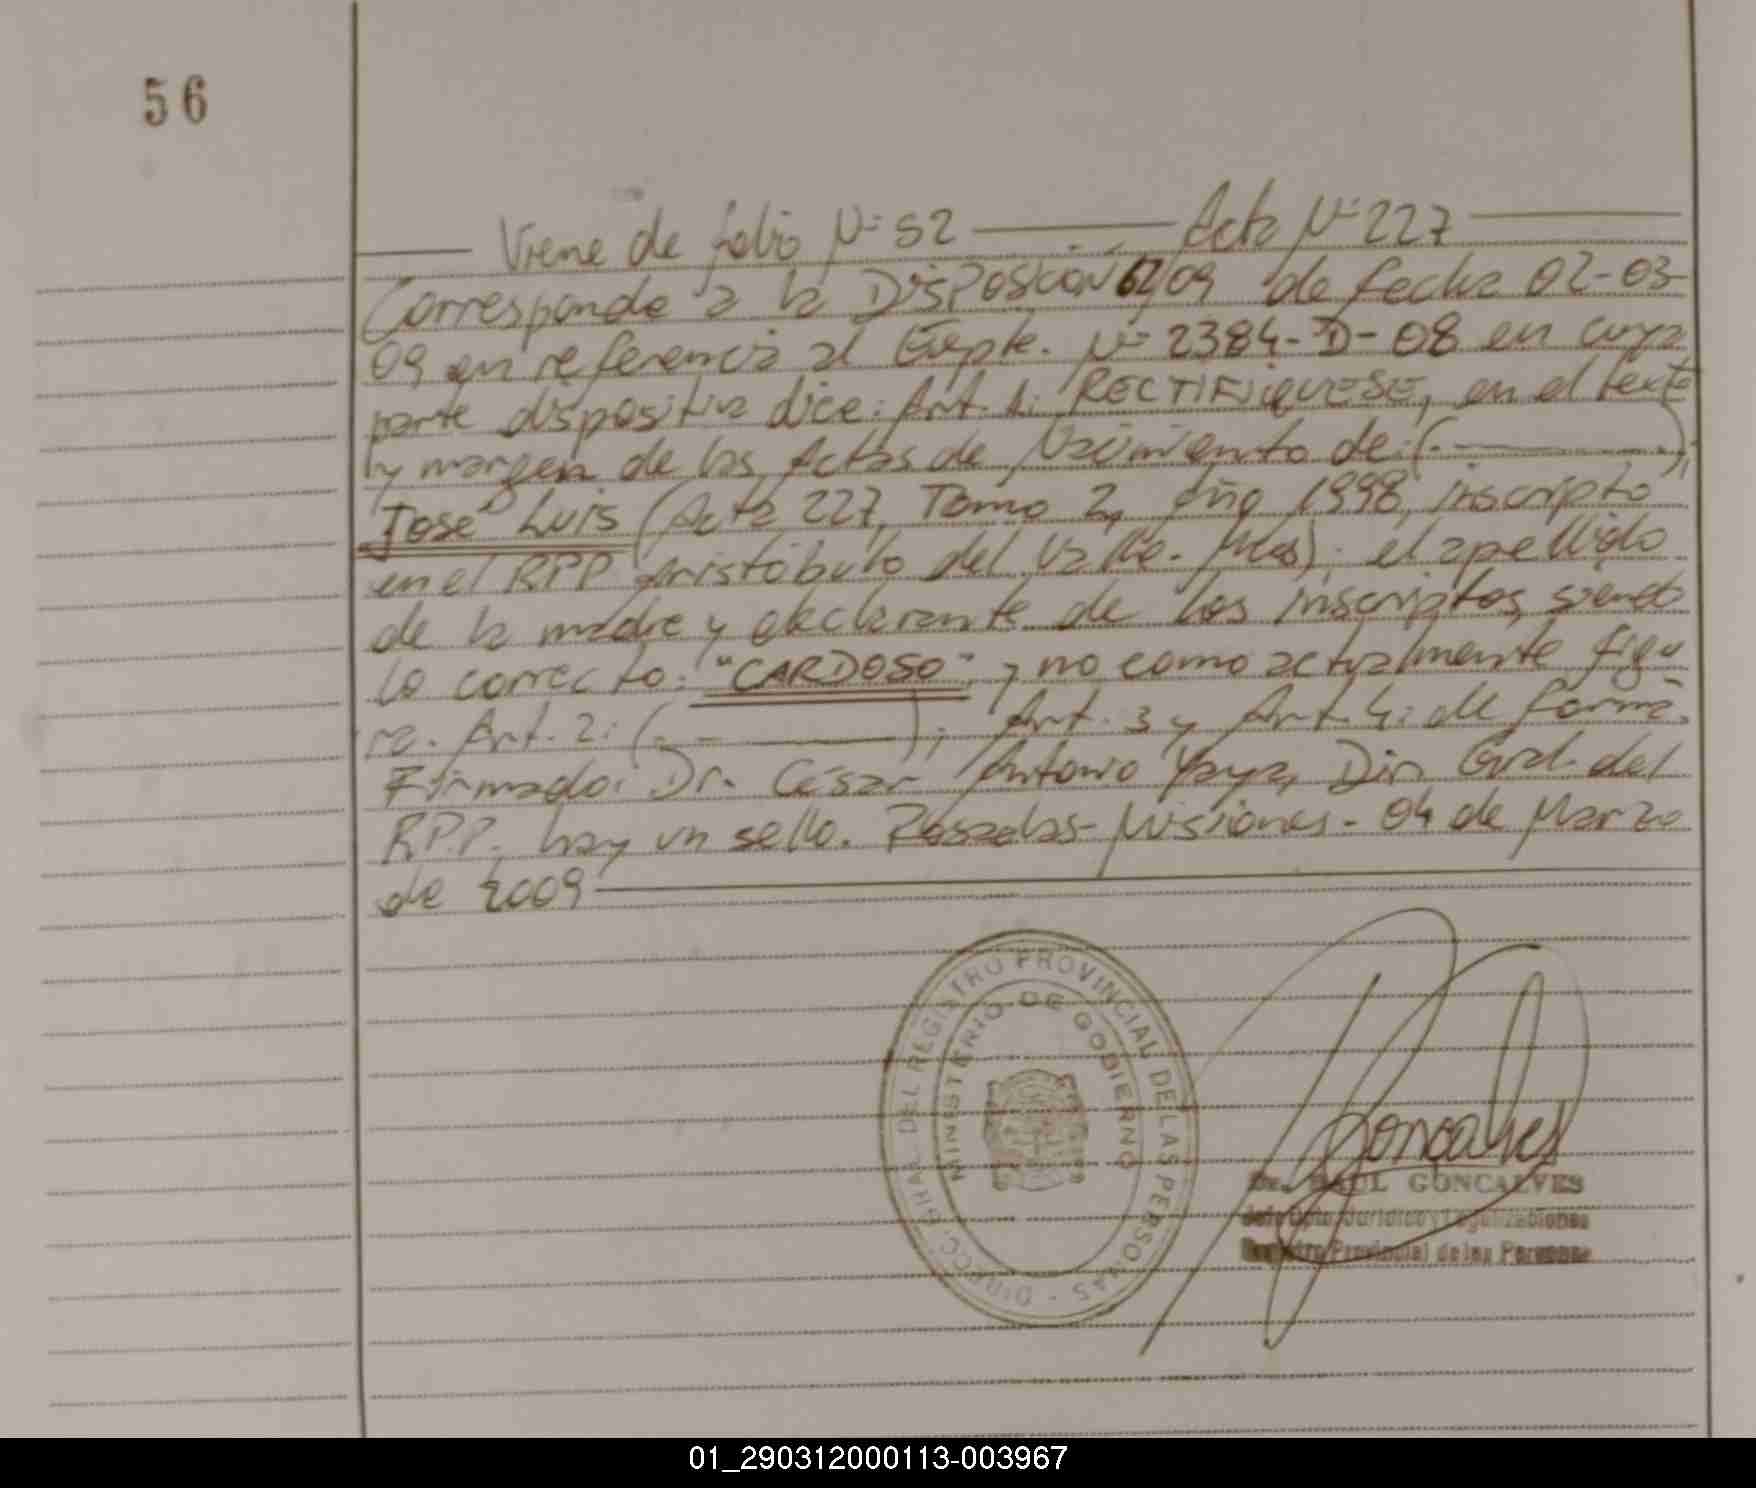 56
Viene de folio Nº 52 Acta Nº 227
Corresponde a la DISPOSICION 62/09 de fecha 02-03-
09 en referencia al Expte. Nº 2384-D-08 en cuya
parte dispositiva dice: Art. 1: RECTIFIQUESE, en el texto
y margen de las Actas de Nacimiento de: (. ———);
José Luis (Acta 227, Tomo 2, Año 1998, inscripto
en el RPP Aristóbulo del Valle. Mnes); el apellido
de la madre y declarante de los inscriptos, siendo
lo correcto: "CARDOSO", y no como actualmente figu
ra. Art. 2: (. - ———); Art. 3 y Art. 4: de forma.
Firmado: Dr. César Antonio Yaya, Dir. Gral. del
RPP. hay un sello. Posadas - Misiones - 04 de Marzo
de 2009
DIRECC. GRAL. DEL REGISTRO PROVINCIAL DE LAS PERSONAS -
MINISTERIO DE GOBIERNO
Goncalves
Dr. RAUL GONCALVES
Jefe Dpto. Jurídico y Legalizaciones
Registro Provincial de las Personas
01_290312000113-003967